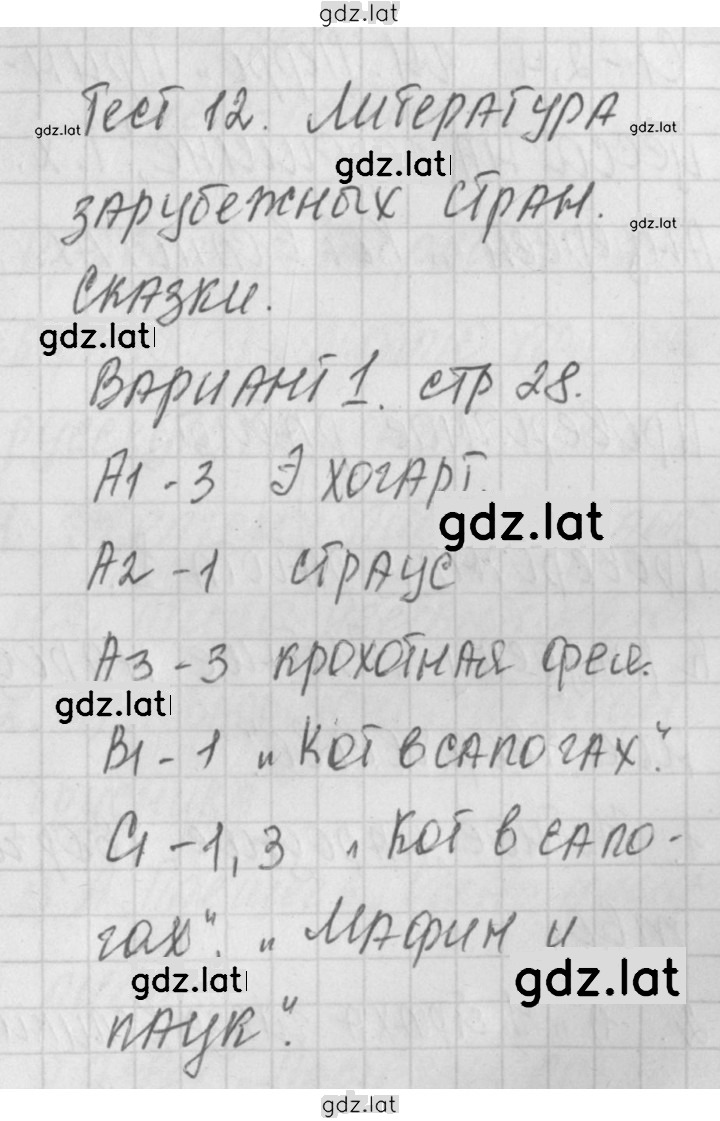 gdz.lat
Тест 12. Литература
gdz.lat gdz.lat
gdz.lat
зарубежных стран.
gdz.lat
Сказки.
gdz.lat
Вариант 1. стр 28.
А1 - 3 Э Хогарт.
gdz.lat
А2 - 1 страус
А3 - 3 крохотная фея.
gdz.lat
В1 - 1 „Кот в сапогах“.
С1 - 1, 3 „Кот в сапо-
гах“. „Мафин и
gdz.lat gdz.lat
паук“.
gdz.lat